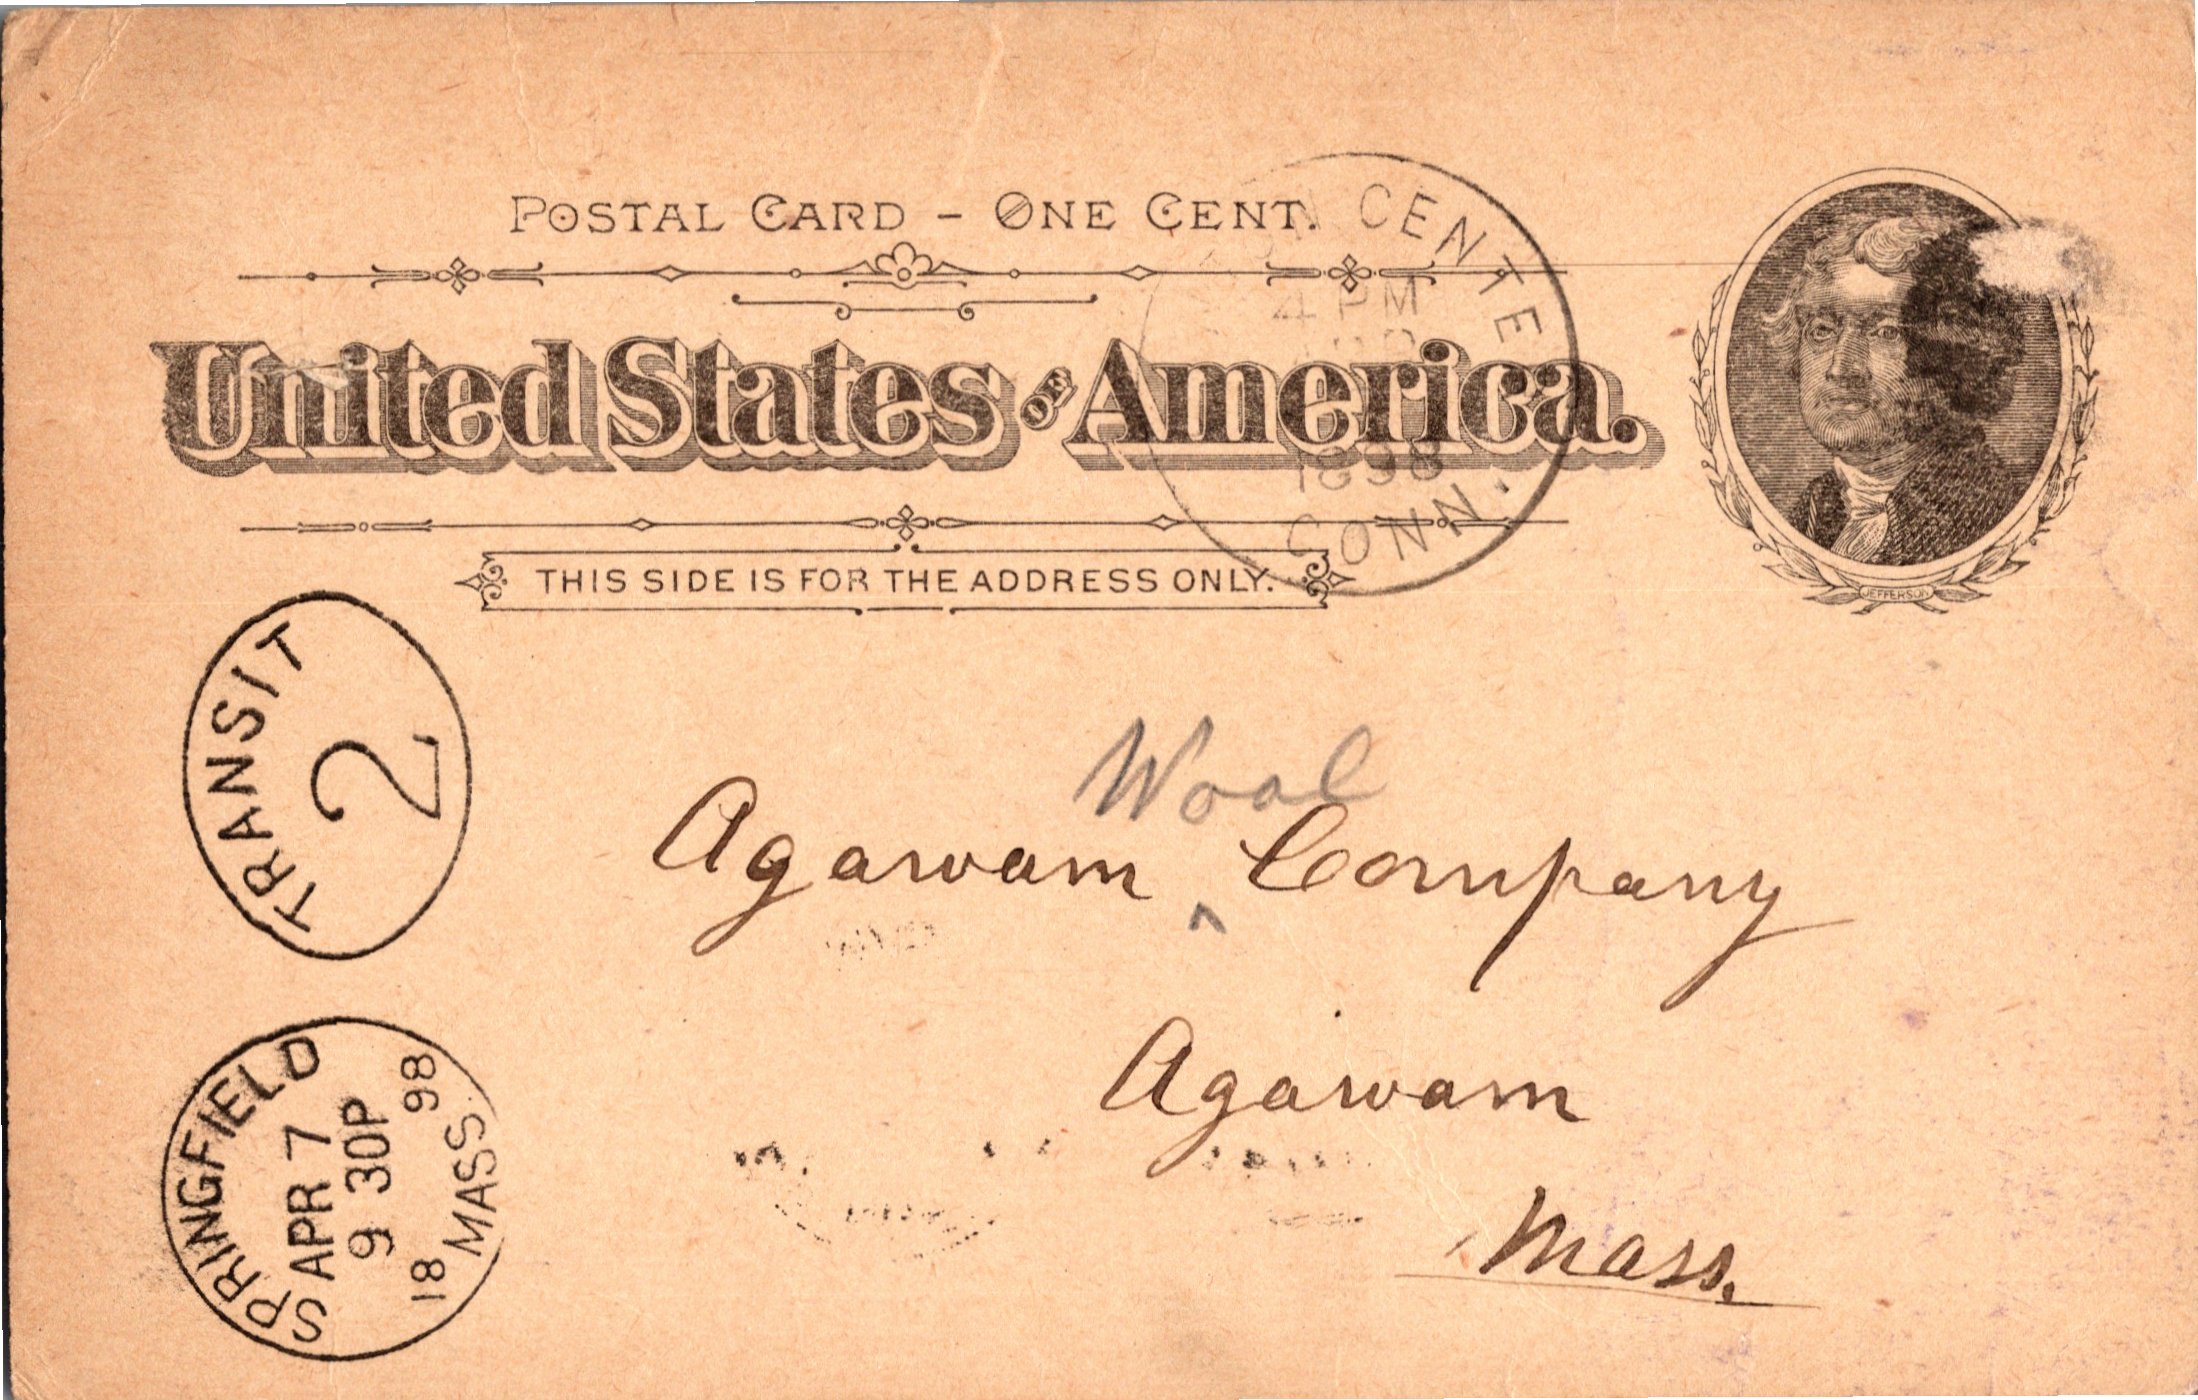 POSTAL CARD - ONE CENT.
United States OF America.
THIS SIDE IS FOR THE ADDRESS ONLY.
CENTE
4 PM
1898
CONN.
JEFFERSON
TRANSIT
2
Wool
Agawam ^ Company
Agawam
Mass.
SPRINGFIELD
APR 7
9 30P
18 98
MASS.